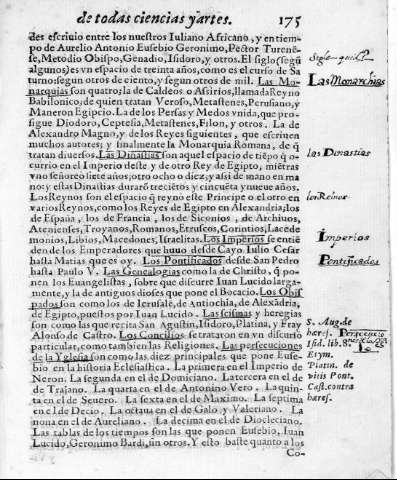 de todas ciencias y artes. 175
des escriuio entre los nuestros Iuliano Africano, y en tiem-
po de Aurelio Antonio Eusebio Geronimo, Péctor Turene-
se, Metodio Obispo, Genadio, Isidoro, y otros. El siglo (segũ
algunos) es vn espacio de treinta años, como es el curso de Sa
turno: segun otros de ciento, y segun otros de mil. Las Mo-
narquias son quatro; la de Caldeos o Asirios, llamada Reyno
Babilonico; de quien tratan Veroso, Metastenes, Perusano, y
Maneron Egipcio. La de los Persas y Medos vnida, que pro-
sigue Diodoro, Ceptesia, Metastenes, Filon, y otros. La de
Alexandro Magno, y de los Reyes siguientes, que escriuen
muchos autores; y finalmente la Monarquia Romana, de q̃
tratan diuersos. Las Dinastias son aquel espacio de tiẽpo q̃ o-
currio en el Imperio deste y de otro Rey de Egipto, miẽtras
vno señoreò siete años; otro ocho o diez; y assi de mano en ma
no: y estas Dinastias durarõ treciẽtos y cincuẽta y nueue años.
Los Reynos son el espacio q̃ reynò este Principe o el otro en
varios Reynos, como los Reyes de Egipto en Alexandria, los
de España, los de Francia, los de Siconios, de Archiuos,
Atenienses, Troyanos, Romanos, Etruscos, Corintios, Lacede
monios, Libios, Macedones, Israelitas. Los Imperios se entiẽ
den de los Emperadores que huuo desde Cayo Iulio Cesar
hasta Matias que es oy. Los Pontificados desde San Pedro
hasta Paulo V. Las Genealogias como la de Christo, q̃ po
nen los Euangelistas, sobre que discurre Iuan Lucido larga-
mente, y la de antiguos dioses que pone el Bocacio. Los Obis
pados son como los de Ierusalẽ, de Antiochia, de Alexãdria,
de Egipto, puestos por Iuan Lucido. Las scismas y heregias
son como las que recita San Agustin, Isidoro, Platina, y Fray
Alonso de Castro. Los Concilios se trataron en vn discurso
particular, como tambien las Religiones. Las persecuciones
de la Yglesia son como las diez principales que pone Euse-
bio en la historia Eclesiastica. La primera en el Imperio de
Neron. La segunda en el de Domiciano. La tercera en el de
de Trajano. La quarta en el de Antonino Vero. La quin-
ta en el de Seuero. La sexta en el de Maximo. La septima
en el del de Decio. La octaua en el de Galo y Valeriano. La
nona en el de Aureliano. La decima en el de Diocleciano.
Las tablas de los tiempos son las que ponen Eusebio, Iuan
Lucido, Geronimo Bardi, sin otros. Y esto baste quanto a los
Co-
Siglo
Las Monarchias
las Dinastias
los Reinos
Imperios
Pontificados
S. Aug. de
heres.
Isid. lib. 8.
Etym.
Platin. de
vitis Pont.
Cast. contra
hares.